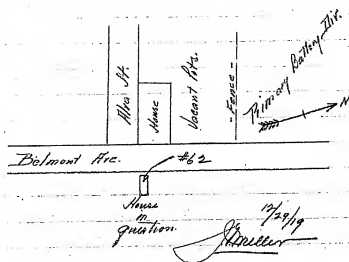 Alva St.
House
Vacant Prts.
- Fence -
Primary Battery Div.
N
Belmont Ave.
#62
House
in
question.
12/29/19